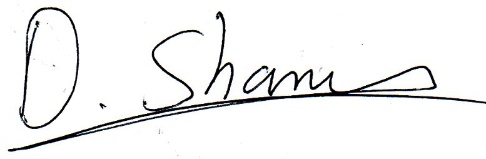 D. Shams